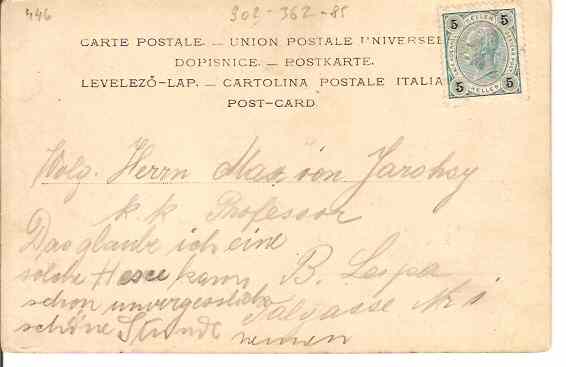 446
902-362-85
CARTE POSTALE. — UNION POSTALE UNIVERSEL
DOPISNICE. — POSTKARTE.
LEVELEZŐ-LAP. — CARTOLINA POSTALE ITALIA
POST-CARD
5 HELLER 5
5 HELLER 5
Wolg. Herrn Max von
k. k. Professor
B. Leipa
Talgasse Nr 1
Das glaube ich eine
solche kann
schon unvergesslich
schöne Stunde nennen